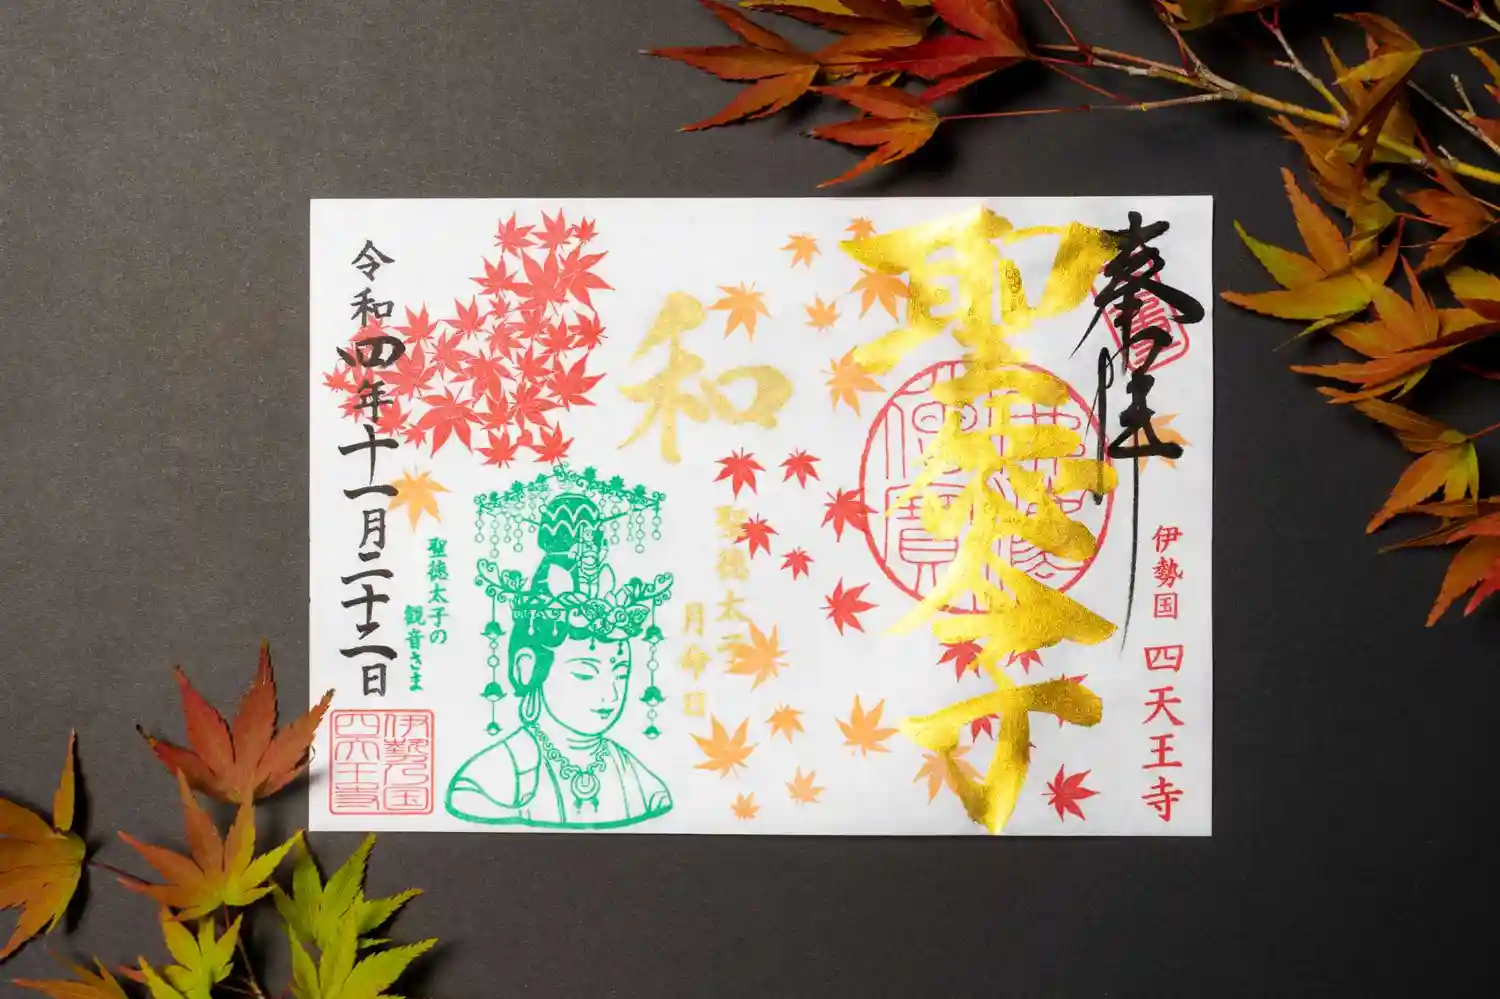 奉拝
伊勢国 四天王寺
聖徳太子
和
聖徳太子
月命日
聖徳太子の
観音さま
令和四年十一月二十二日
伊勢乃国
四天王寺